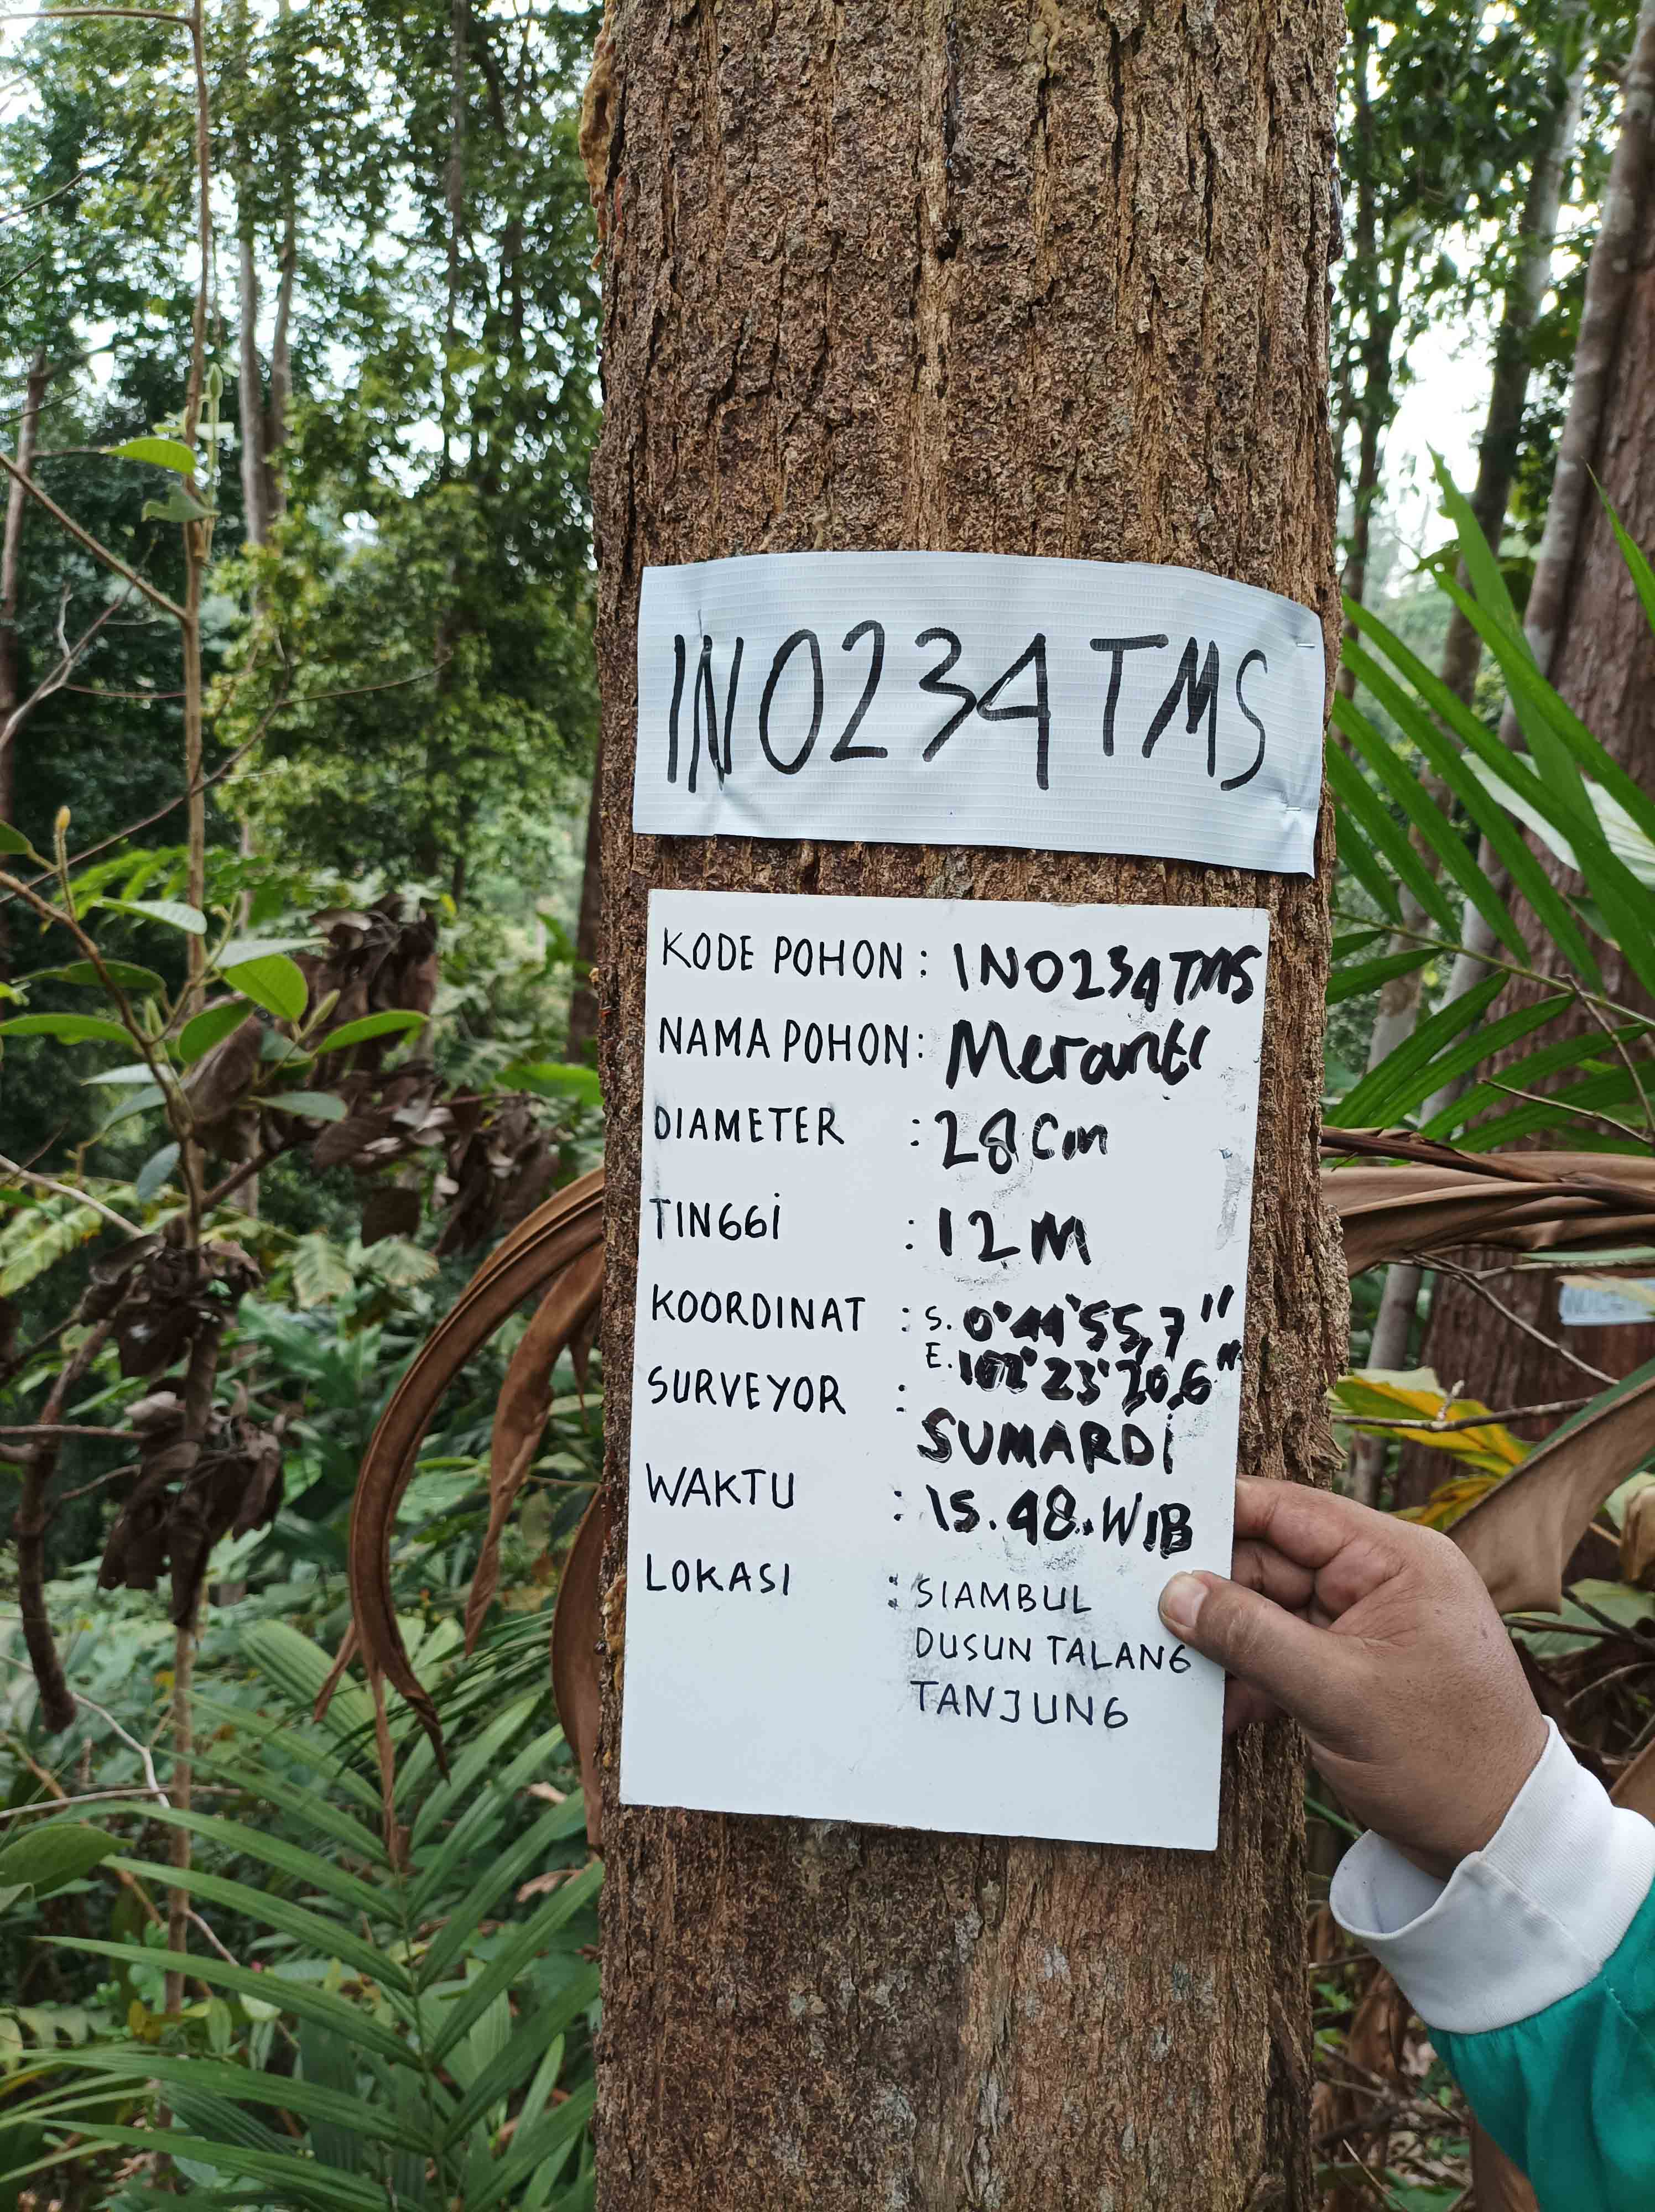 IN0234TMS
KODE POHON : IN0234TMS
NAMA POHON : Meranti
DIAMETER : 28 Cm
TINGGI : 12 M
KOORDINAT : S. 0°44'55,7"
E. 102°23'20,6"
SURVEYOR :
SUMARDI
WAKTU : 15.48.WIB
LOKASI : SIAMBUL
DUSUN TALANG
TANJUNG